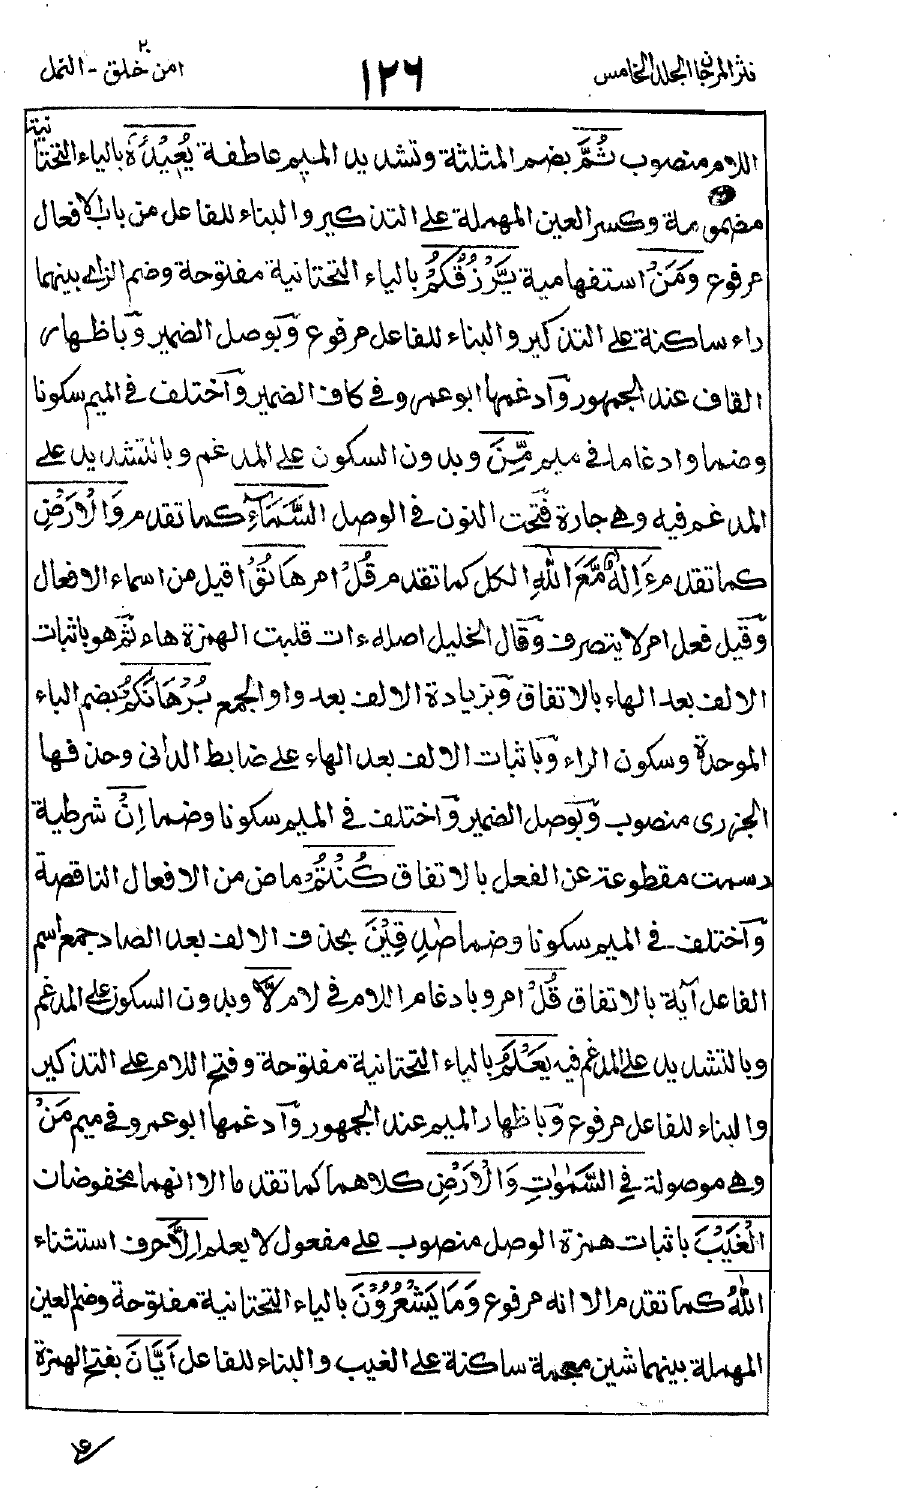 نثر المرجان الجلد الخامس
١٢٦
امن خلق ٢٠ - النمل
اللام منصوب ثُمَّ بضم المثلثة وتشديد الميم عاطفة يُعِيْدُهٗ بالياء التحتانية
مضمومة وكسر العين المهملة على التذكير والبناء للفاعل من باب الافعال
مرفوع وَمَنْ استفهامية يَّرْزُقُكُمْ بالياء التحتانية مفتوحة وضم الزاي بينهما
راء ساكنة على التذكير والبناء للفاعل مرفوع وبوصل الضمير وباظهار
القاف عند الجمهور وادغمها ابو عمرو في كاف الضمير واختلف في الميم سكونا
وضما وادغاما في ميم مِّنَ وبدون السكون على المدغم وبالتشديد على
المدغم فيه وهي جارة فتحت النون في الوصل السَّمَآءِ كما تقدم وَالْاَرْضِ
كما تقدم ءَاِلٰهٌ مَّعَ اللّٰهِ الكل كما تقدم قُلْ امر هَاتُوْا قيل من اسماء الافعال
وقيل فعل امر لا يتصرف وقال الخليل اصله ءات قلبت الهمزة هاء ثم هو باثبات
الالف بعد الهاء بالاتفاق وبزيادة الالف بعد واو الجمع بُرْهَانَكُمْ بضم الباء
الموحدة وسكون الراء وباثبات الالف بعد الهاء على ضابط الداني وحذفها
الجزري منصوب وبوصل الضمير واختلف في الميم سكونا وضما اِنْ شرطية
رسمت مقطوعة عن الفعل بالاتفاق كُنْتُمْ ماض من الافعال الناقصة
واختلف في الميم سكونا وضما صٰدِقِيْنَ بحذف الالف بعد الصاد جمع اسم
الفاعل آية بالاتفاق قُلْ امر وبادغام اللام في لام لَّا وبدون السكون على المدغم
وبالتشديد على المدغم فيه يَعْلَمُ بالياء التحتانية مفتوحة وفتح اللام على التذكير
والبناء للفاعل مرفوع وباظهار الميم عند الجمهور وادغمها ابو عمرو في ميم مَنْ
وهي موصولة فِي السَّمٰوٰتِ وَالْاَرْضِ كلاهما كما تقدما الا انهما مخفوضان
الْغَيْبَ باثبات همزة الوصل منصوب على مفعول لا يعلم اِلَّا حرف استثناء
اللّٰهُ كما تقدم الا انه مرفوع وَمَا يَشْعُرُوْنَ بالياء التحتانية مفتوحة وضم العين
المهملة بينهما شين معجمة ساكنة على الغيب والبناء للفاعل اَيَّانَ بفتح الهمزة